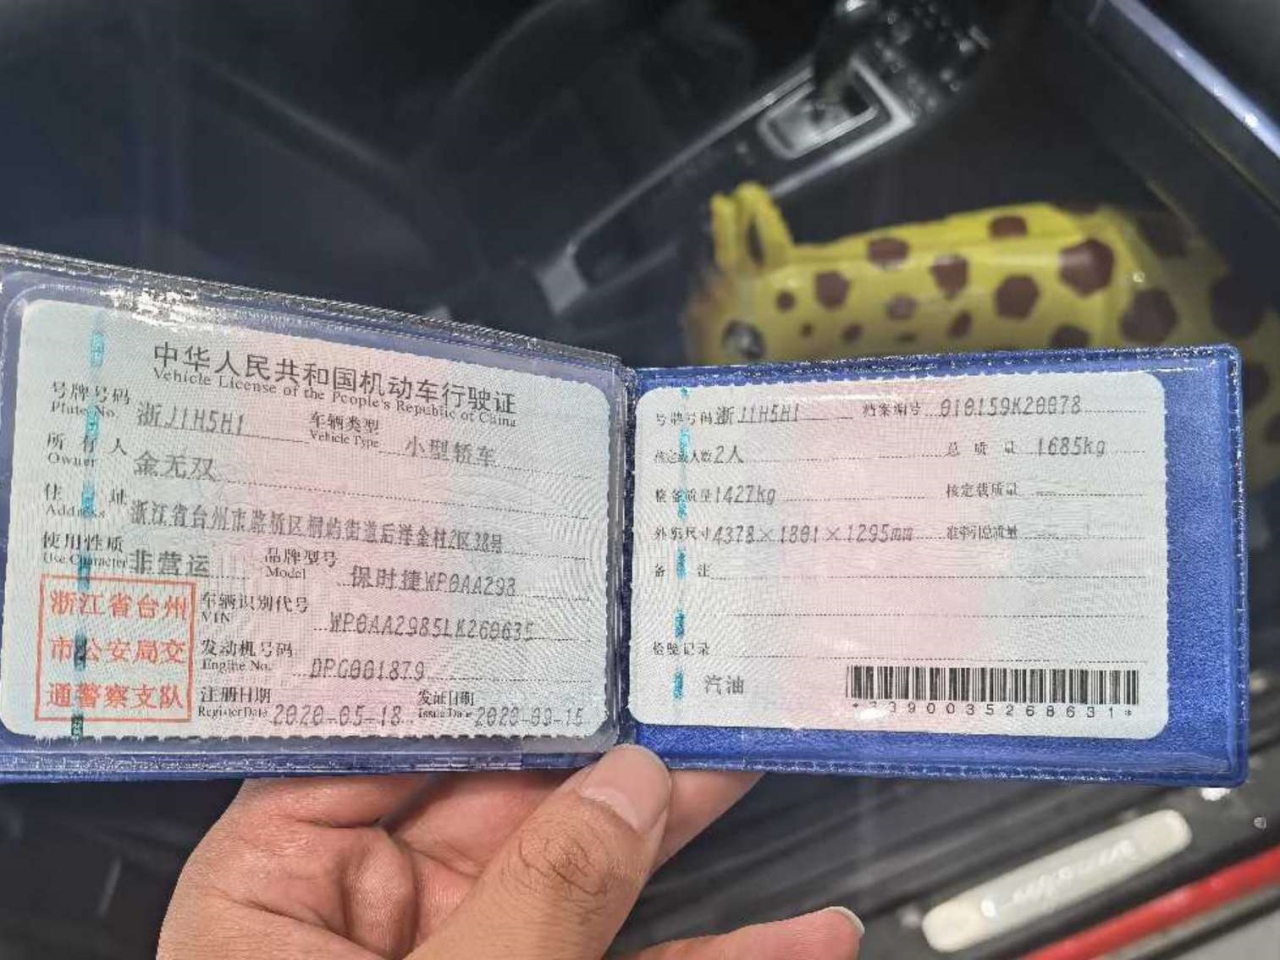 中华人民共和国机动车行驶证
Vehicle License of the People's Republic of China
号牌号码 浙J1H5H1 车辆类型 小型轿车
Plate No. Vehicle Type
所有人 金无双
Owner
住址 浙江省台州市路桥区桐屿街道后洋金村2区38号
Address
使用性质 非营运 品牌型号 保时捷WP0AA298
Use Character Model
浙江省台州
市公安局交
通警察支队
车辆识别代号 WP0AA2985LK260635
VIN
发动机号码 DPG001879
Engine No.
注册日期 2020-05-18 发证日期 2020-09-15
Register Date Issue Date
号牌号码 浙J1H5H1 档案编号 010159K20078
核定载人数 2人 总质量 1685kg
整备质量 1427kg 核定载质量 --
外廓尺寸 4378×1801×1295mm 准牵引总质量 --
备注
检验记录
汽油
*3390035268631*